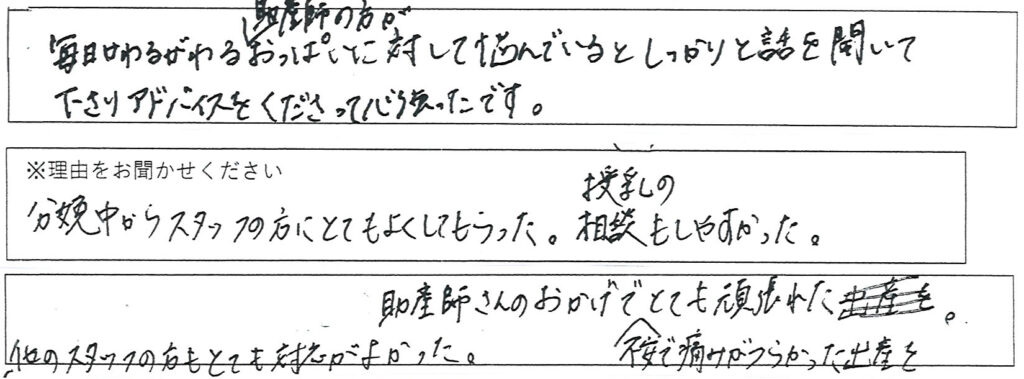 助産師の方が
毎日かわるがわるおっぱいに対して悩んでいるとしっかりと話を聞いて
下さりアドバイスをくださって心強ったです。
※理由をお聞かせください
授乳の
分娩中からスタッフの方にとてもよくしてもらった。相談もしやすかった。
助産師さんのおかげでとても頑張れた出産を。
他のスタッフの方もとても対応がよかった。 不安で痛みがつらかった出産を